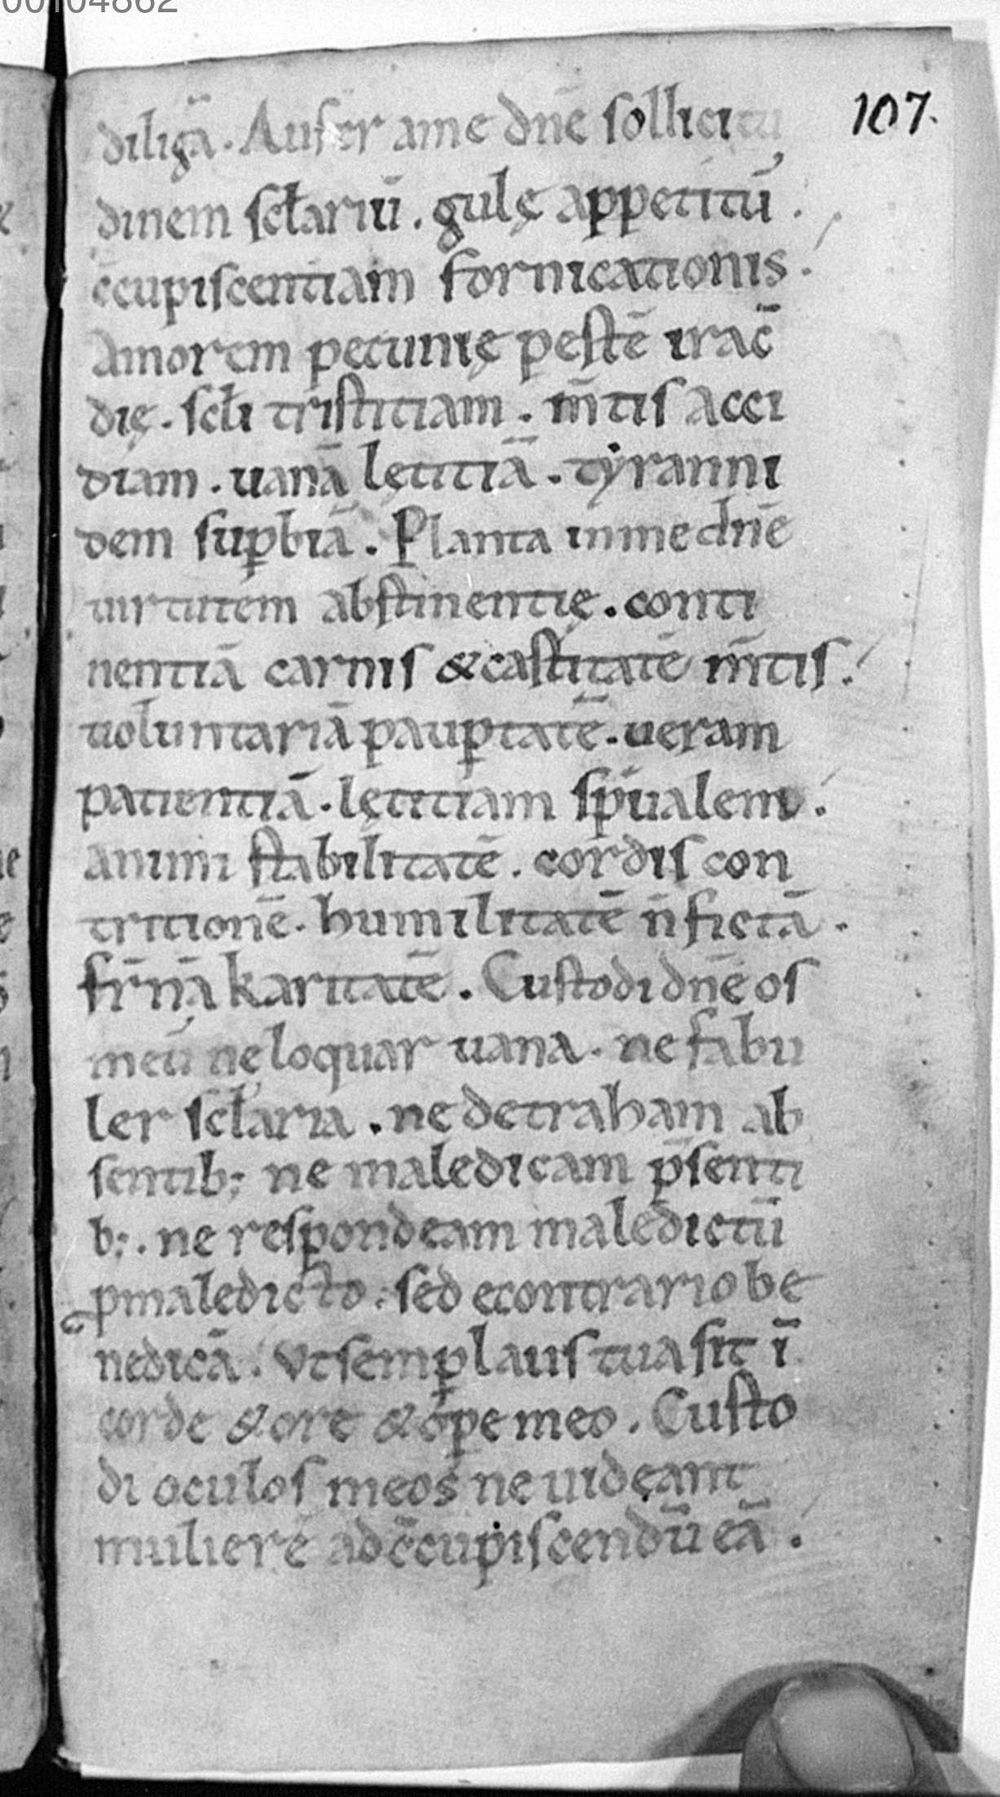 00104862
107.
diligā. Aufer ame dn̄e sollicitu
dinem scłariū. gulę appetitū.
c̄cupiscentiam fornicationis.
Amorem pecunię pestē irac̄
dię. scłi tristitiam. m̄tis acci
diam. uanā lętitiā. tyranni
dem sup̱biā. Planta inme dn̄e
uirtutem abstinentię. conti
nentiā carnis &castitatē m̄tis.
uoluntariā paup̱tatē. ueram
patientiā. lętitiam sp̄ualem.
animi stabilitatē. cordis con
tritionē. humilitatē n̄ fictā.
fr̄nā karitatē. Custodi dn̄e os
meū ne loquar uana. ne fabu
ler scłaria. ne detraham ab
sentib; ne maledicam p̄senti
b;. ne respondeam maledictū
ꝓmaledicto. sed econtrario be
nedicā. Vt semp̱ laus tua sit ī
corde &ore &ōpe meo. Custo
di oculos meos ne uideant
mulierē adc̄cupiscendū eā.